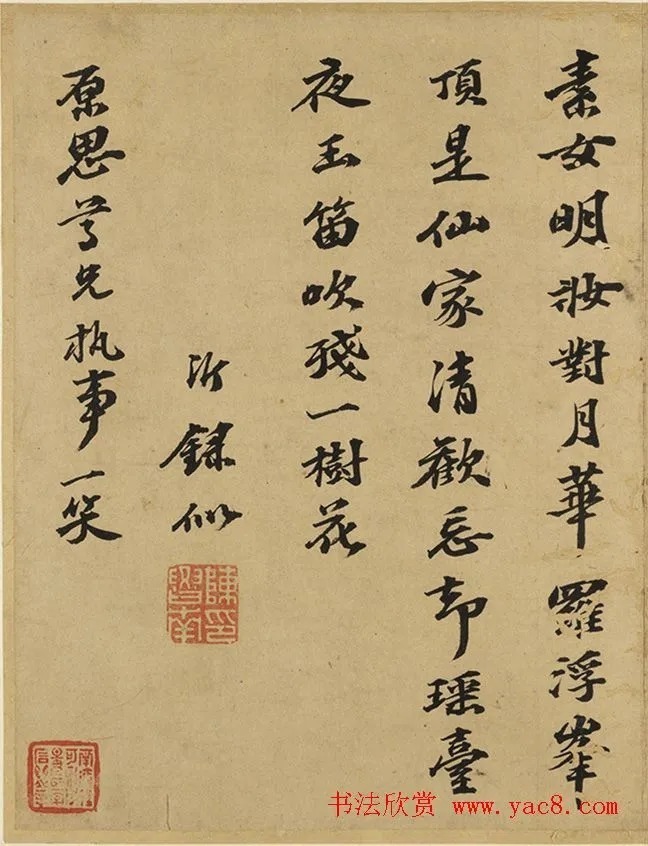 素女明妝對月華羅浮峯
頂是仙家清歡忘却瑤臺
夜玉笛吹殘一樹花
沂錄似
原思尊兄執事一笑
书法欣赏 www.yac8.com